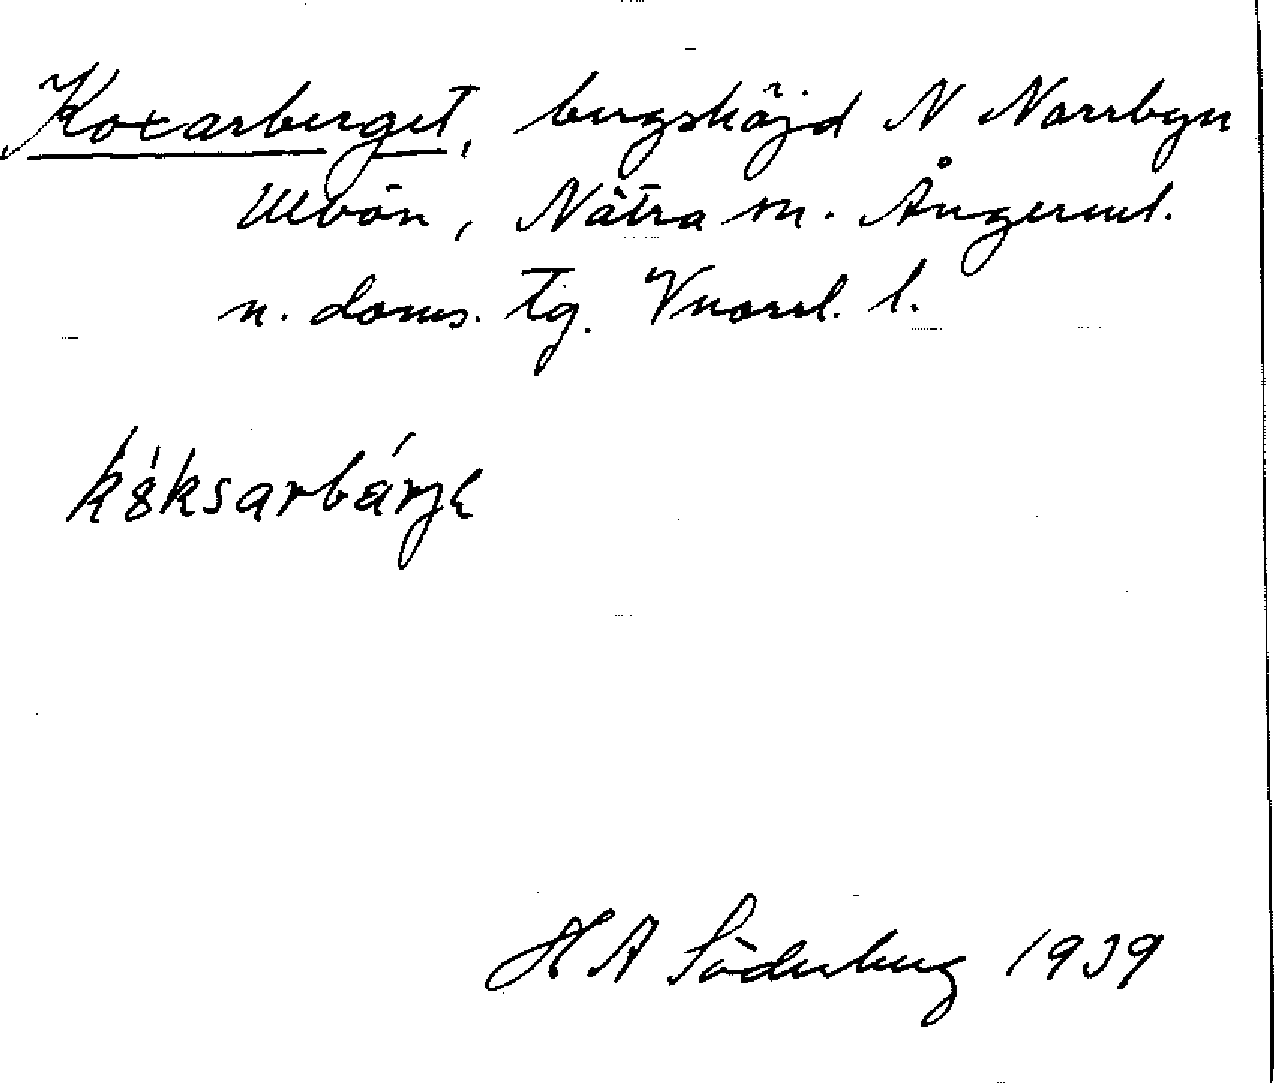 Koxarberget, bergshöjd N Norrbyn
Ulvön, Nätra sn. Ångerml.
n. doms. tg. Vnorrl. l.
kö́ksarbárjk
H A Söderberg 1939